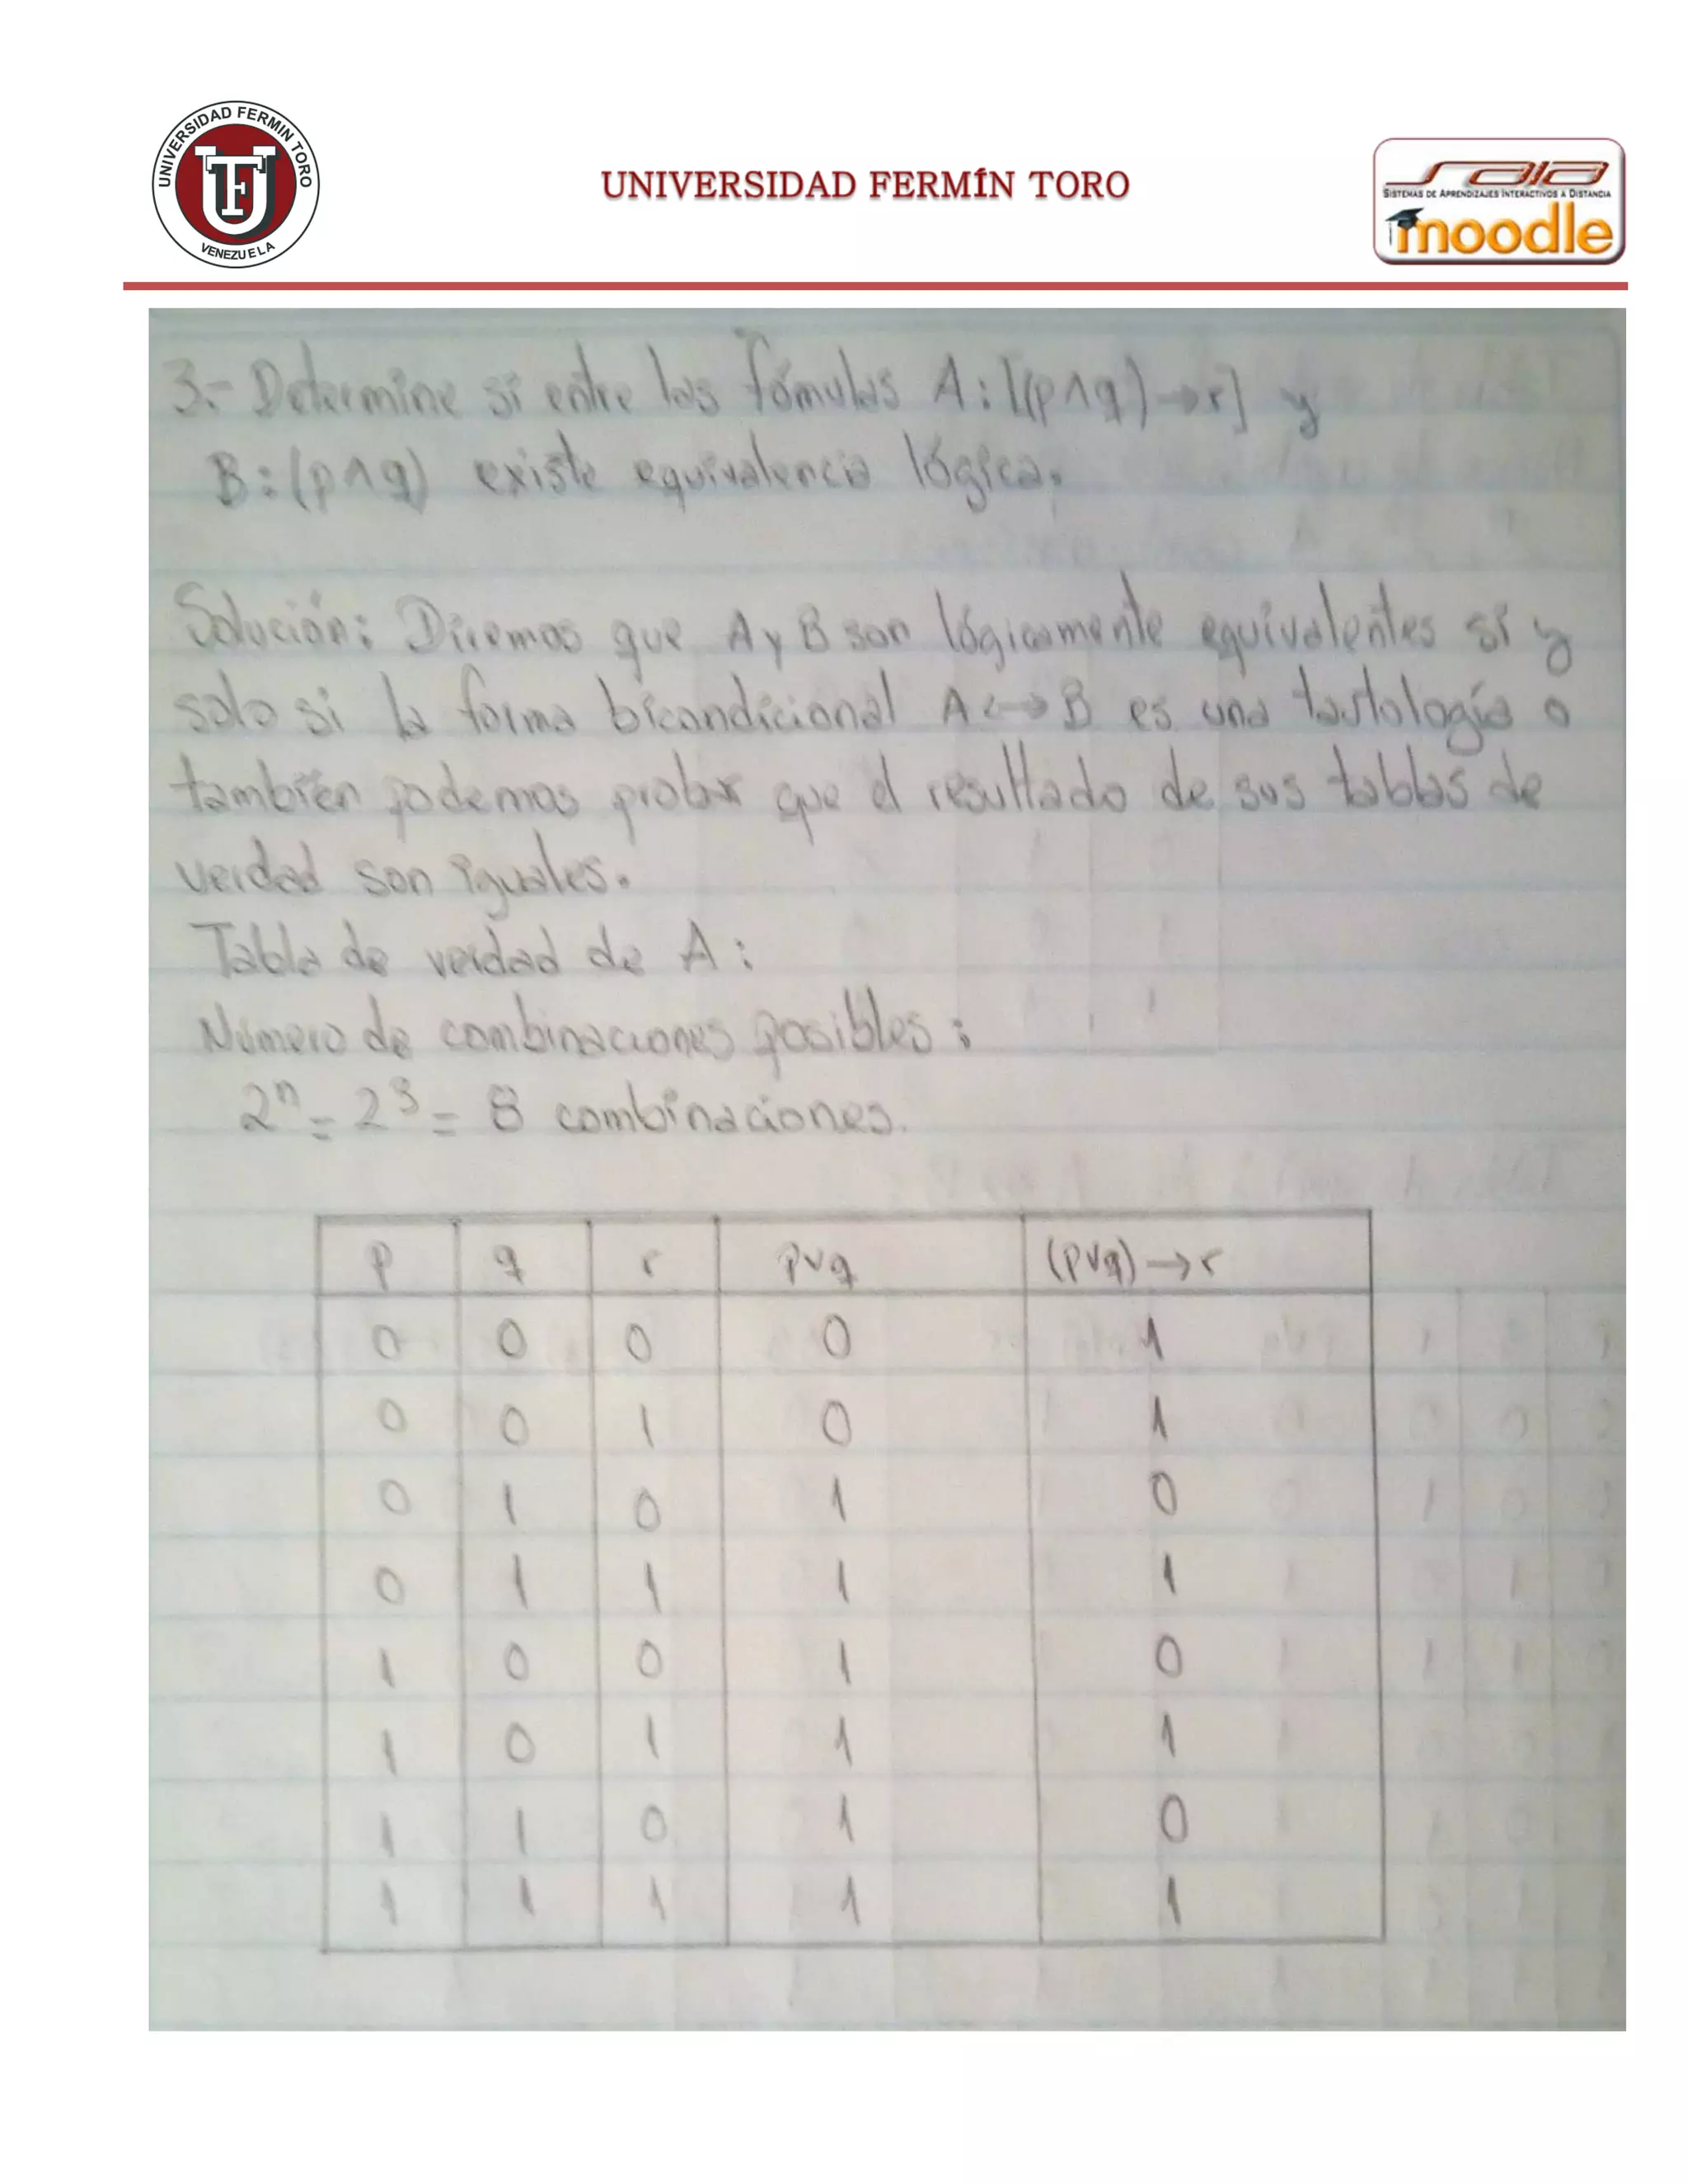 UNIVERSIDAD FERMIN TORO
VENEZUELA
UNIVERSIDAD FERMÍN TORO
SAIA
SISTEMAS DE APRENDIZAJES INTERACTIVOS A DISTANCIA
moodle
3.- Determine si entre las fómulas A: [(p∧q)→r] y
B: (p∧q) existe equivalencia lógica.
Solución: Diremos que A y B son lógicamente equivalentes si y
solo si la forma bicondicional A↔B es una tautología o
también podemos probar que el resultado de sus tablas de
verdad son iguales.
Tabla de verdad de A:
Número de combinaciones posibles:
2ⁿ = 2³ = 8 combinaciones.
p q r p∨q (p∨q)→r
0 0 0 0 1
0 0 1 0 1
0 1 0 1 0
0 1 1 1 1
1 0 0 1 0
1 0 1 1 1
1 1 0 1 0
1 1 1 1 1